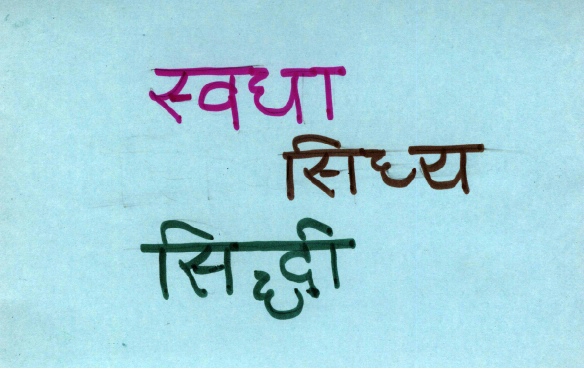 स्वधा
सिध्य
सिध्दी